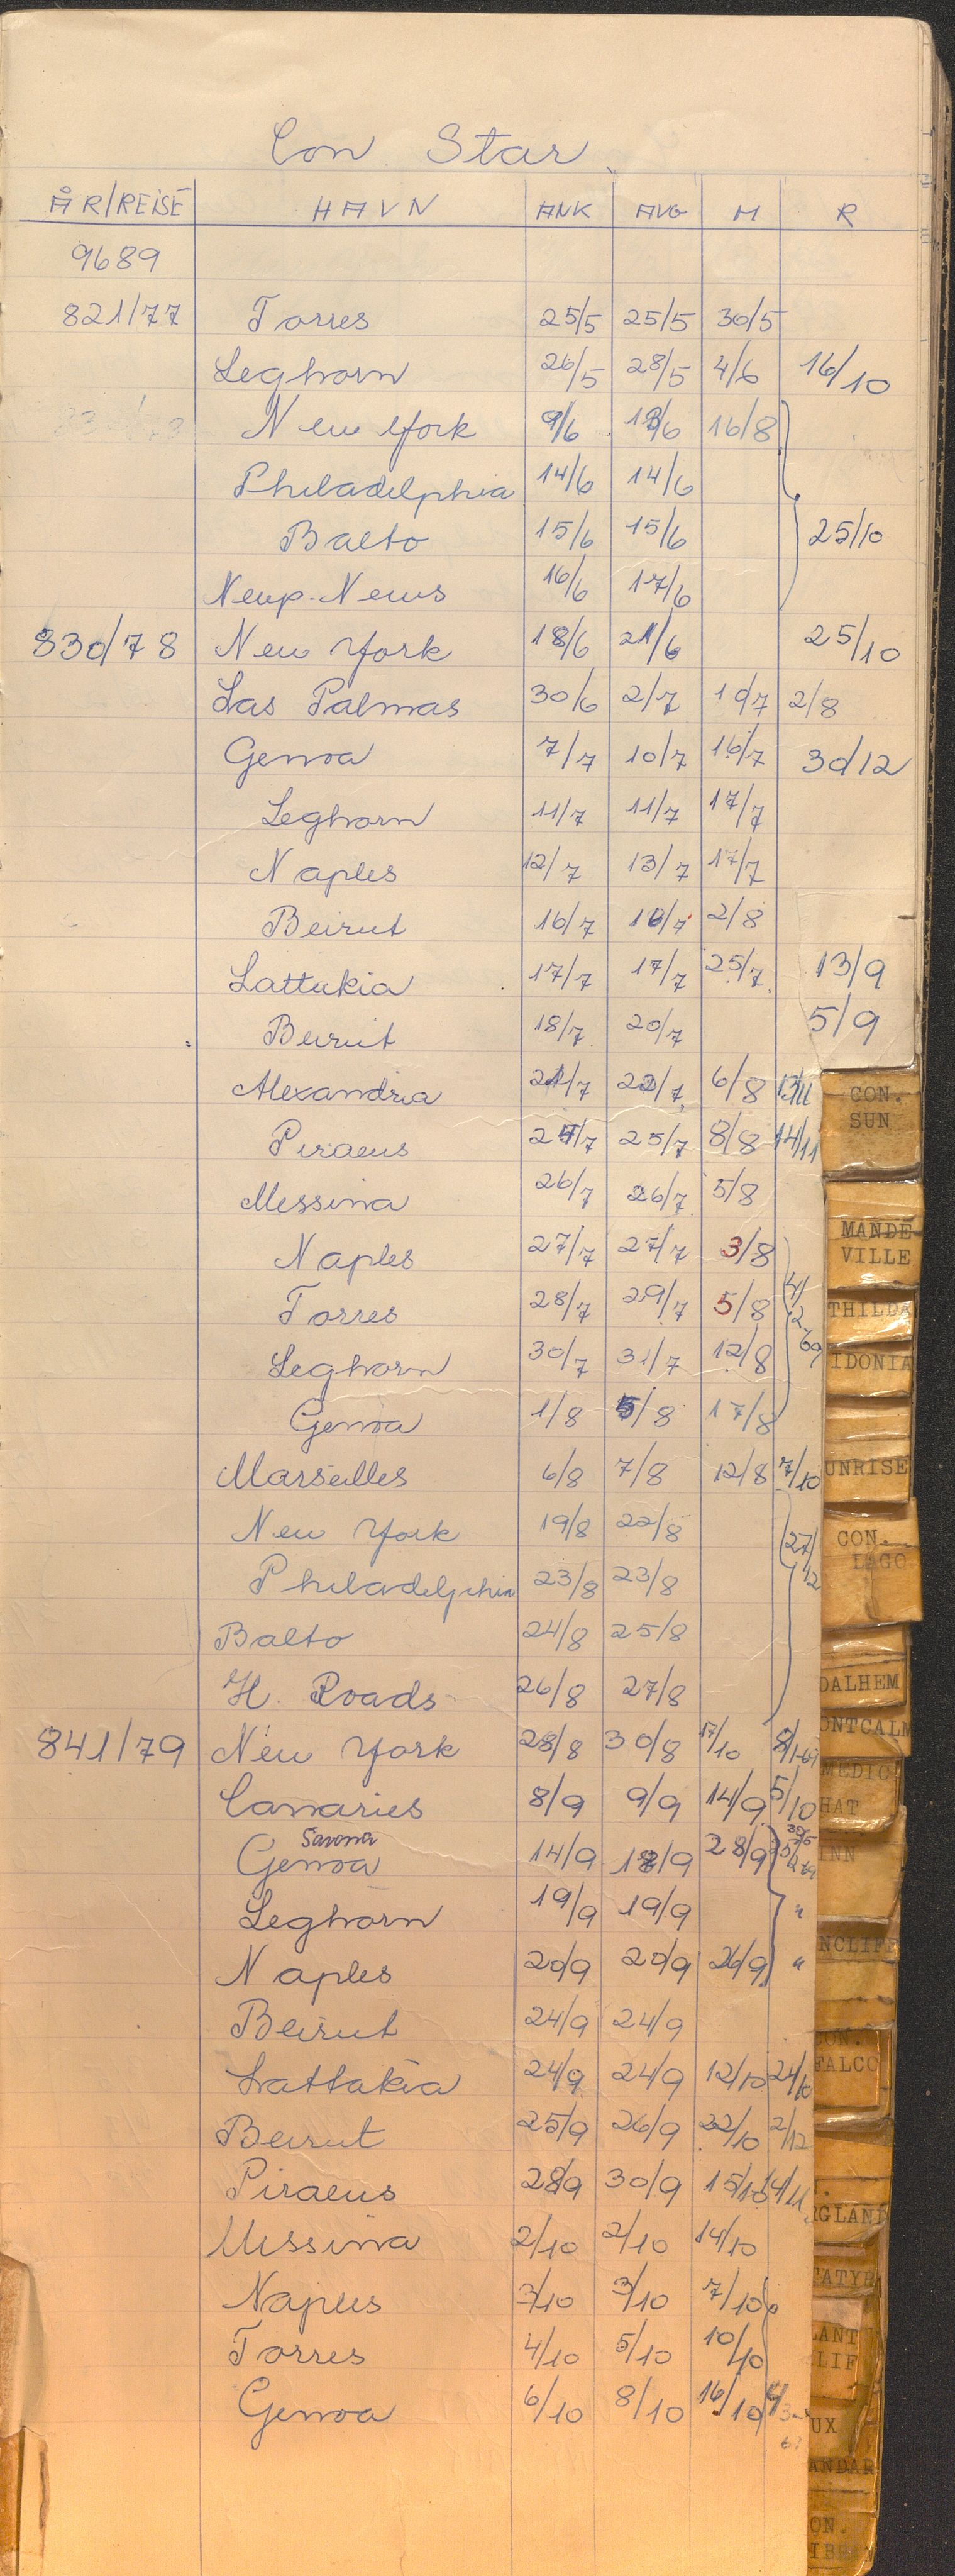 Con. Star
ÅR/REISE HAVN ANK AVG M R
9689
821/77 Torres 25/5 25/5 30/5
Leghorn 26/5 28/5 4/6 16/10
New York 9/6 13/6 16/8
Philadelphia 14/6 14/6
Balto 15/6 15/6 25/10
Newp. News 16/6 17/6
830/78 New York 18/6 21/6 25/10
Las Palmas 30/6 2/7 10/7 2/8
Genoa 7/7 10/7 16/7 30/12
Leghorn 11/7 11/7 17/7
Naples 12/7 13/7 17/7
Beirut 16/7 16/7 2/8
Lattukia 17/7 17/7 25/7 13/9
Beirut 18/7 20/7 5/9
Alexandria 21/7 22/7 6/8 13/11
Piraeus 24/7 25/7 8/8 14/11
Messina 26/7 26/7 5/8
Naples 27/7 27/7 3/8
Torres 28/7 29/7 5/8 4/2-69
Leghorn 30/7 31/7 12/8
Genoa 1/8 5/8 17/8
Marseilles 6/8 7/8 12/8 7/10
New York 19/8 22/8 27/12
Philadelphia 23/8 23/8
Balto 24/8 25/8
H. Roads 26/8 27/8
841/79 New York 28/8 30/8 17/10 8/1-69
Canaries 8/9 9/9 14/9 5/10
Savona
Genoa 14/9 18/9 28/9
Leghorn 19/9 19/9 "
Naples 20/9 20/9 26/9 "
Beirut 24/9 24/9
Lattakia 24/9 24/9 12/10 24/10
Beirut 25/9 26/9 22/10 2/12
Piraeus 28/9 30/9 15/10 14/11
Messina 2/10 2/10 14/10
Naples 3/10 3/10 7/10
Torres 4/10 5/10 10/10
Genoa 6/10 8/10 16/10
CON.
SUN
MANDE-
VILLE
THILDA
IDONIA
UNRISE
CON.
IAGO
DALHEM
ONTCALM
MEDIC
HAT
INN
NCLIFF
CON.
FALCO
RGLAND
TATYR
LANT
LIF
UX
ANDAR
ON.
IBR